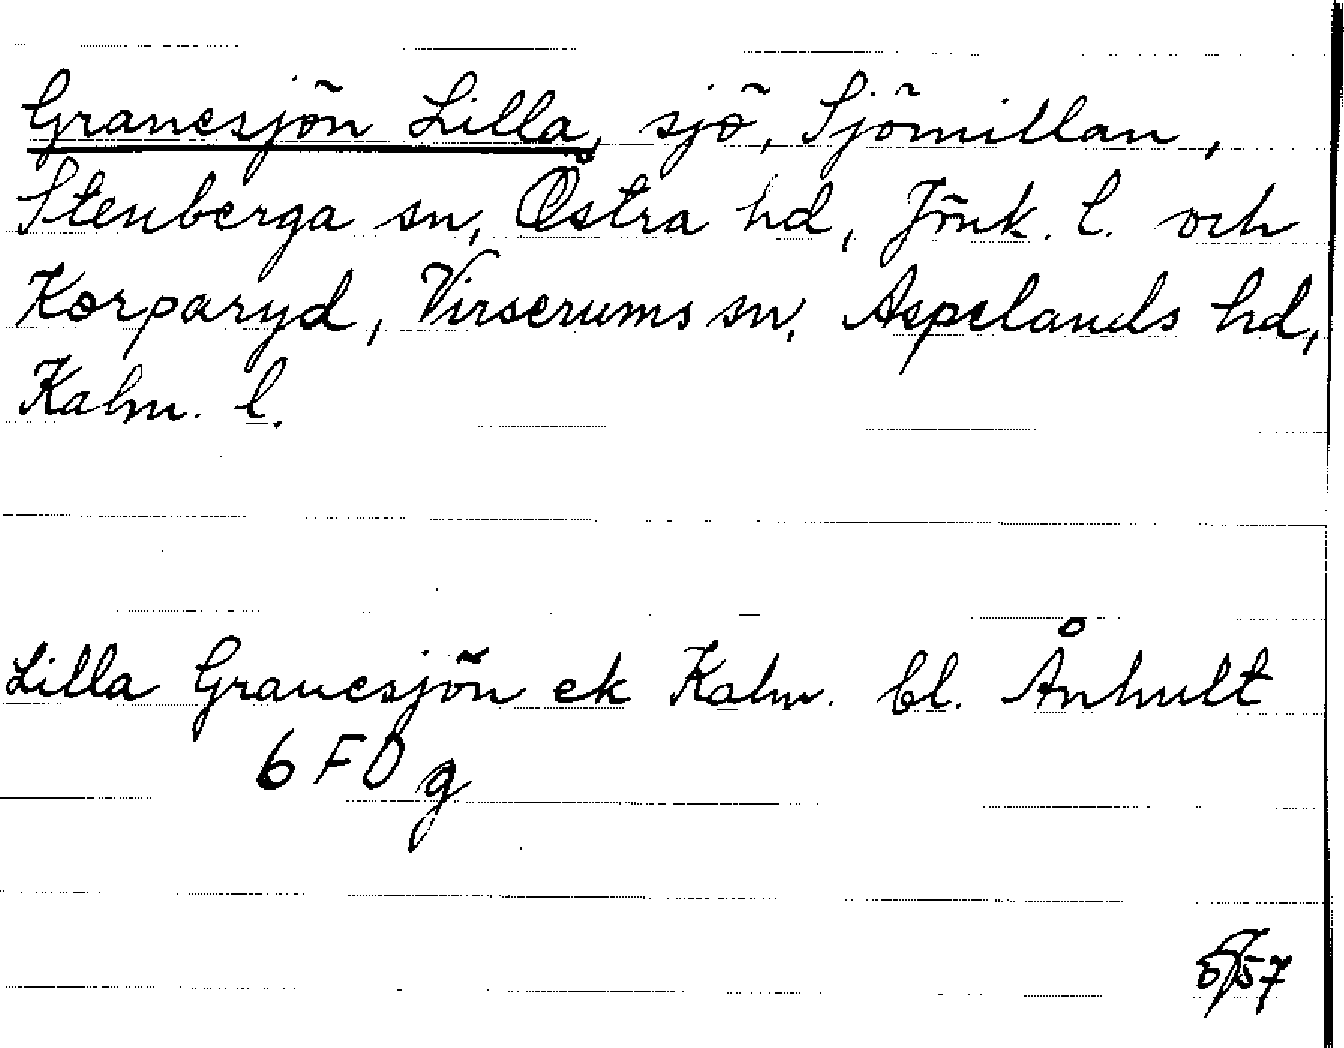 Granesjön Lilla, sjö, Sjömillan,
Stenberga sn, Östra hd, Jönk. l. och
Korparyd, Virserums sn, Aspelands hd,
Kalm. l.
Lilla Granesjön ek Kalm. bl. Ånhult
6 F0 g
57